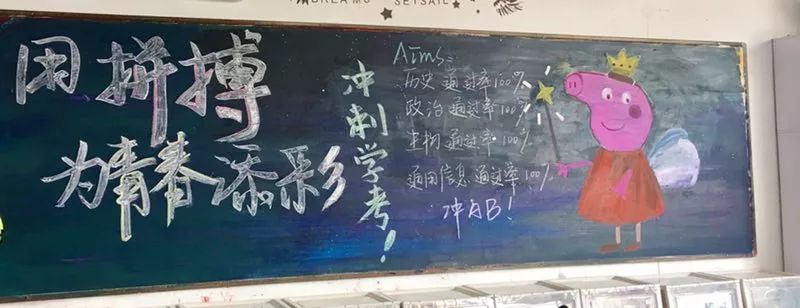 DREAMS SETSAIL
用拼搏
为青春添彩
冲刺学考！
Aims:
历史通过率100%
政治通过率100%
生物通过率100%
通用信息通过率100%
冲AB！